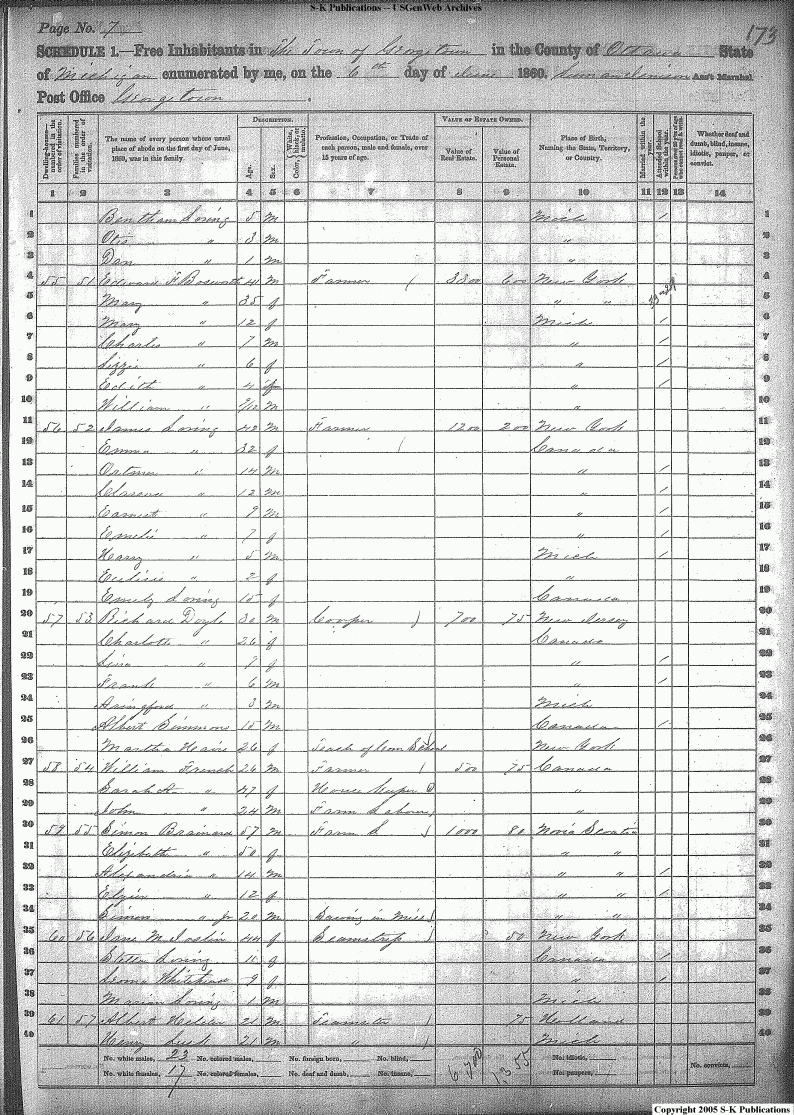 S-K Publications -- USGenWeb Archives
Page No. 7
173
SCHEDULE 1.—Free Inhabitants in The Town of Georgetown in the County of Ottawa State
of Michigan enumerated by me, on the 6th day of June 1860. Ass't Marshal
Post Office Georgetown.
Dwelling-houses numbered in the order of visitation.
Families numbered in the order of visitation.
The name of every person whose usual place of abode on the first day of June, 1860, was in this family.
DESCRIPTION.
Age.
Sex.
Color, White, black, or mulatto.
Profession, Occupation, or Trade of each person, male and female, over 15 years of age.
VALUE OF ESTATE OWNED.
Value of Real Estate.
Value of Personal Estate.
Place of Birth, Naming the State, Territory, or Country.
Married within the year.
Attended School within the year.
Whether deaf and dumb, blind, insane, idiotic, pauper, or convict.
1 2 3 4 5 6 7 8 9 10 11 12 13 14
1 Loring 5 m Mich / 1
2 Otis " 3 m " 2
3 Dan " 1 m " 3
4 55 51 Edward F Bosworth 41 m Farmer 3300 600 New York 4
5 Mary " 35 f " " 5
6 Mary " 12 f Mich / 6
7 Charles " 7 m " / 7
8 Lizzie " 6 f " / 8
9 Edith " 4 f " / 9
10 William " 9/12 m 10
11 56 52 James Loring 42 m Farmer 1200 200 New York 11
12 Emma " 32 f Canada 12
13 " 14 m " / 13
14 " 12 m " / 14
15 Earnest " 9 m " / 15
16 Emelie " 7 f " / 16
17 Harry " 5 m Mich / 17
18 " 2 f " 18
19 Emily Loring 15 f Canada 19
20 57 53 Richard Doyle 30 m Cooper 700 75 New Jersey 20
21 Charlott " 26 f Canada 21
22 " 7 f " / 22
23 Frank " 6 m " / 23
24 " 3 m Mich 24
25 Albert Simmons 15 m Canada / 25
26 Martha Haire 26 f Teach of Com School New York 26
27 58 54 William French 26 m Farmer 500 75 Canada 27
28 Sarah A " 47 f House Keeper " 28
29 John " 24 m Farm Labour " 29
30 59 55 Simon Brainard 57 m Farm L 1000 80 Nova Scotia 30
31 Elizabeth " 50 f " " 31
32 " 14 m " " / 32
33 " 12 f " " / 33
34 Simon " Jr 20 m Sawing in Mill " " 34
35 60 56 Jane M Joslin 44 f Seamstress 50 New York 35
36 Loring 11 f Canada / 36
37 Whitehead 9 f " / 37
38 Loring 1 m Mich 38
39 61 57 Albert 21 m Teamster 75 Holland 39
40 Henry Lusk 21 m " Mich 40
No. white males, 23 No. colored males, No. foreign born, No. blind, No. idiotic, No. convicts,
No. white females, 17 No. colored females, No. deaf and dumb, No. insane, 6700 1355 No. paupers,
Copyright 2005 S-K Publications